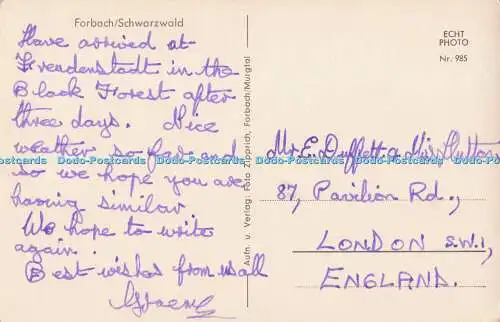 Forbach/Schwarzwald
Have arrived at
Freudenstadt in the
Black Forest after
three days. Nice
weather so far and
so we hope you are
having similar
We hope to write
again.
Best wishes from us all
Aufn. u. Verlag: Foto Zipprich, Forbach/Murgtal
ECHT
PHOTO
Nr. 985
Mr. E. Duffett &
87, Pavilion Rd.,
LONDON S.W.1,
ENGLAND.
Dodo-Postcards Dodo-Postcards Dodo-Postcards Dodo-Postcards Dodo-Postcards Dodo-Postcards